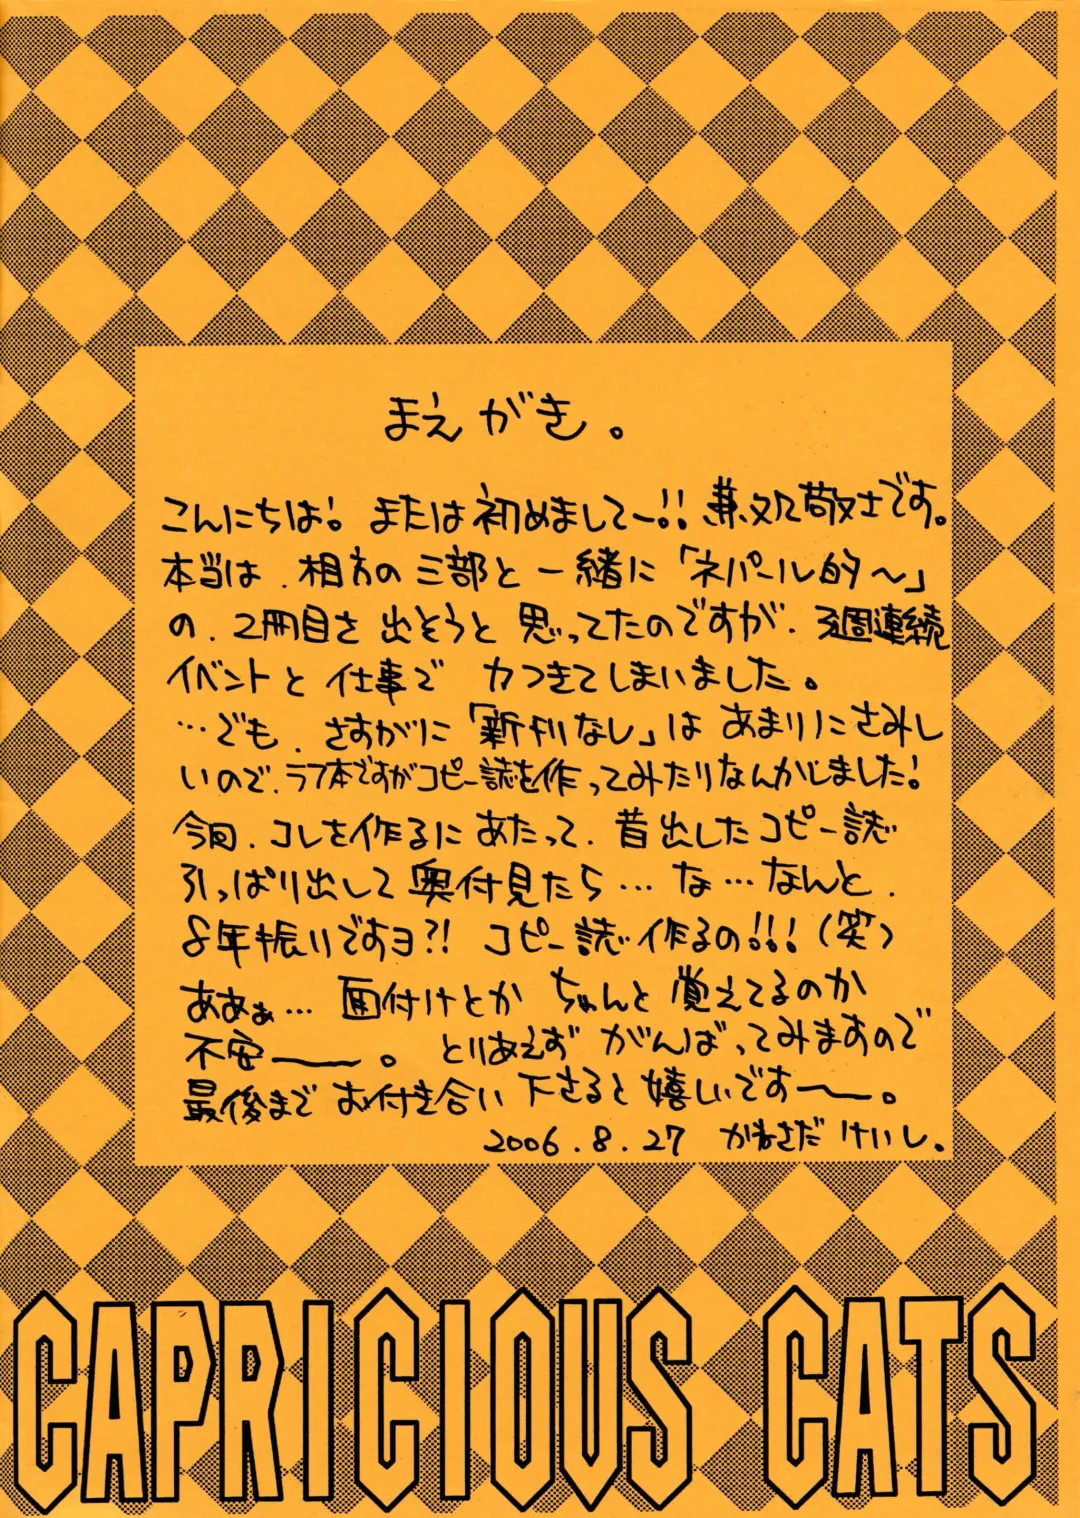 まえがき。
こんにちは!。または初めましてー!! 兼処敬士です。
本当は、相方の三部と一緒に「ネパール的〜」
の、2冊目を出そうと思ってたのですが、3週連続
イベントと仕事で力つきてしまいました。
…でも、さすがに「新刊なし」はあまりにさみし
いので、ラフ本ですがコピー誌を作ってみたりなんかしました!
今回、コレを作るにあたって、昔出したコピー誌
引っぱり出して奥付見たら…な…なんと、
8年振りですヨ?! コピー誌作るの!!!(笑)
ああぁ… 面付けとかちゃんと覚えてるのか
不安――。とりあえずがんばってみますので
最後までお付き合い下さると嬉しいです〜。
2006.8.27 かねさだ けいし。
CAPRICIOUS CATS